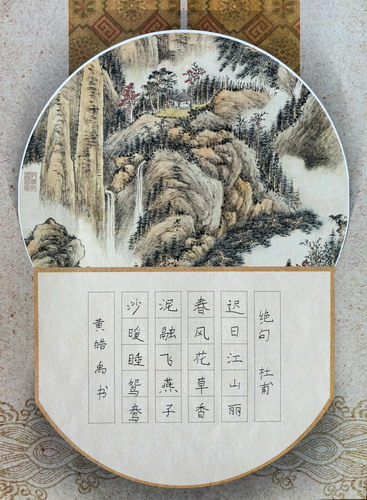 绝句 杜甫
迟日江山丽
春风花草香
泥融飞燕子
沙暖睡鸳鸯
黄皓禹书